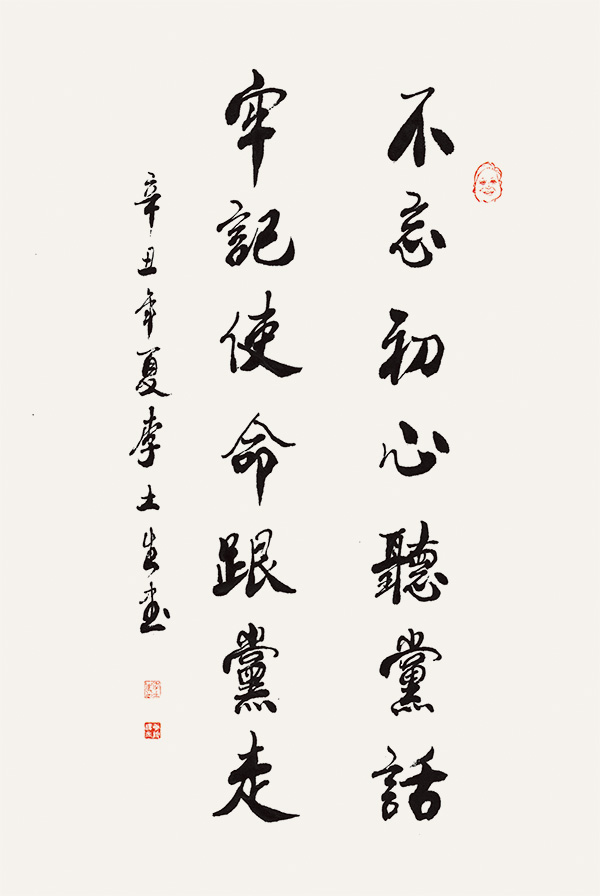 不忘初心聽黨話
牢記使命跟黨走
辛丑年夏李士生书